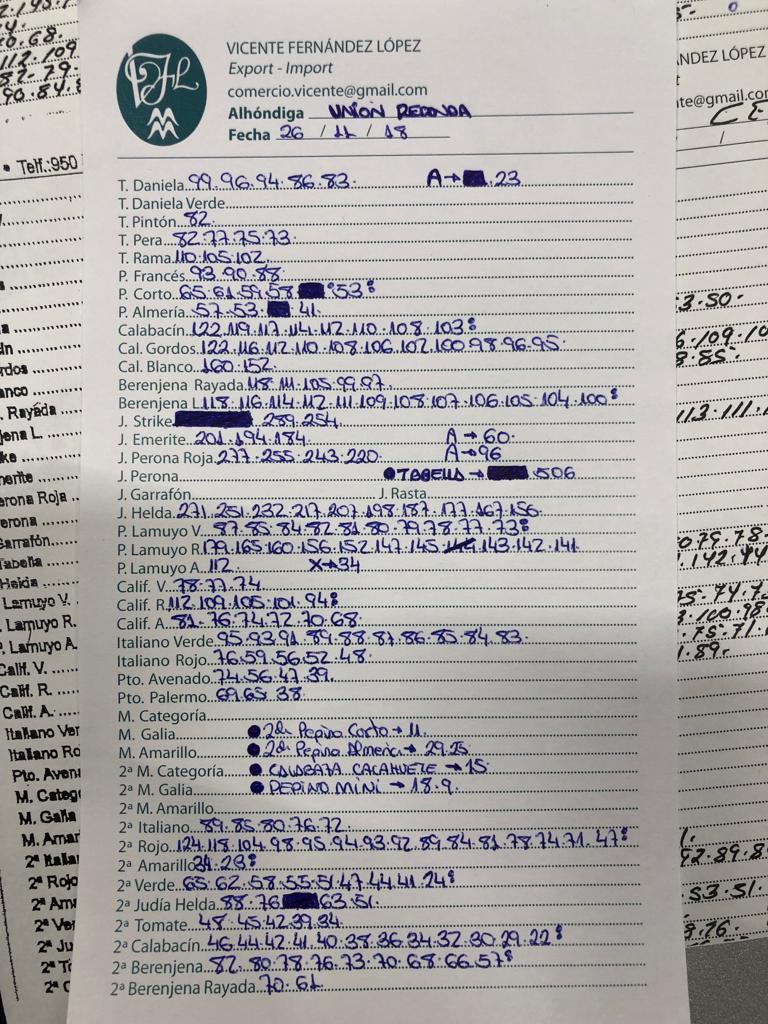 VICENTE FERNÁNDEZ LÓPEZ
Export - Import
comercio.vicente@gmail.com
Alhóndiga UNION REDONDA
Fecha 26 / 11 / 18
T. Daniela..99.96.94.86.83. A→ .23
T. Daniela Verde
T. Pintón..82.
T. Pera...82.77.75.73.
T. Rama..110.105.102.
P. Francés..93.90.88
P. Corto..65.61.59.58 °53°
P. Almería..57.53. 41.
Calabacín..122.119.117.114.112.110.108.103°
Cal. Gordos..122.116.112.110.108.106.102.100.98.96.95.
Cal. Blanco..160.152.
Berenjena Rayada.118.111.105.99.97.
Berenjena L.118.116.114.112.111.109.108.107.106.105.104.100°
J. Strike .289.254.
J. Emerite..201.194.184. A→60.
J. Perona Roja..277.255.243.220. A→96
J. Perona ●TABELLA→ .506
J. Garrafón J. Rasta
J. Helda..271.251.232.217.207.198.187.177.167.156.
P. Lamuyo V...87.85.84.82.81.80.79.78.77.73°
P. Lamuyo R.179.165.160.156.152.147.145. 143.142.141.
P. Lamuyo A..112. X→34
Calif. V..78.77.74
Calif. R..112.109.105.101.94°
Calif. A...81.76.74.72.70.68.
Italiano Verde..95.93.91.89.88.87.86.85.84.83.
Italiano Rojo...76.59.56.52.48.
Pto. Avenado..74.56.47.39.
Pto. Palermo..69.65.38.
M. Categoría
M. Galia ●2da Pepino Corto→11.
M. Amarillo ●2da Pepino Almeria→29.25
2ª M. Categoría ●CALABAZA CACAHUETE→15
2ª M. Galia ●PEPINO MINI→18.9.
2ª M. Amarillo
2ª Italiano..89.85.80.76.72.
2ª Rojo..124.118.104.98.95.94.93.92.89.84.81.78.74.71.47°
2ª Amarillo 34.23°
2ª Verde..65.62.58.55.51.47.44.41.24°
2ª Judía Helda..88.76 63.51.
2ª Tomate..48.45.42.39.34.
2ª Calabacín..46.44.42.41.40.38.36.34.32.30.29.22°
2ª Berenjena..82.80.78.76.73.70.68.66.57°
2ª Berenjena Rayada..70.61.